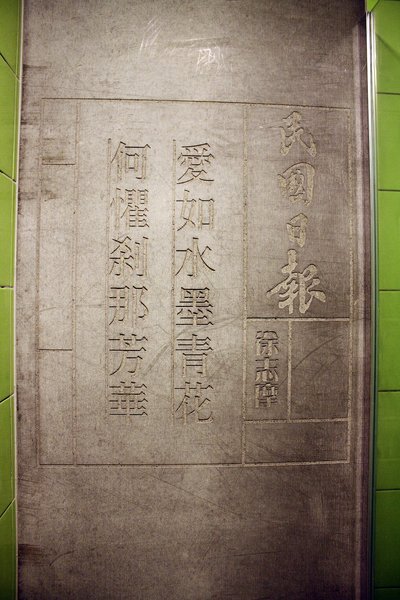 民國日報
徐志摩
愛如水墨青花
何懼刹那芳華